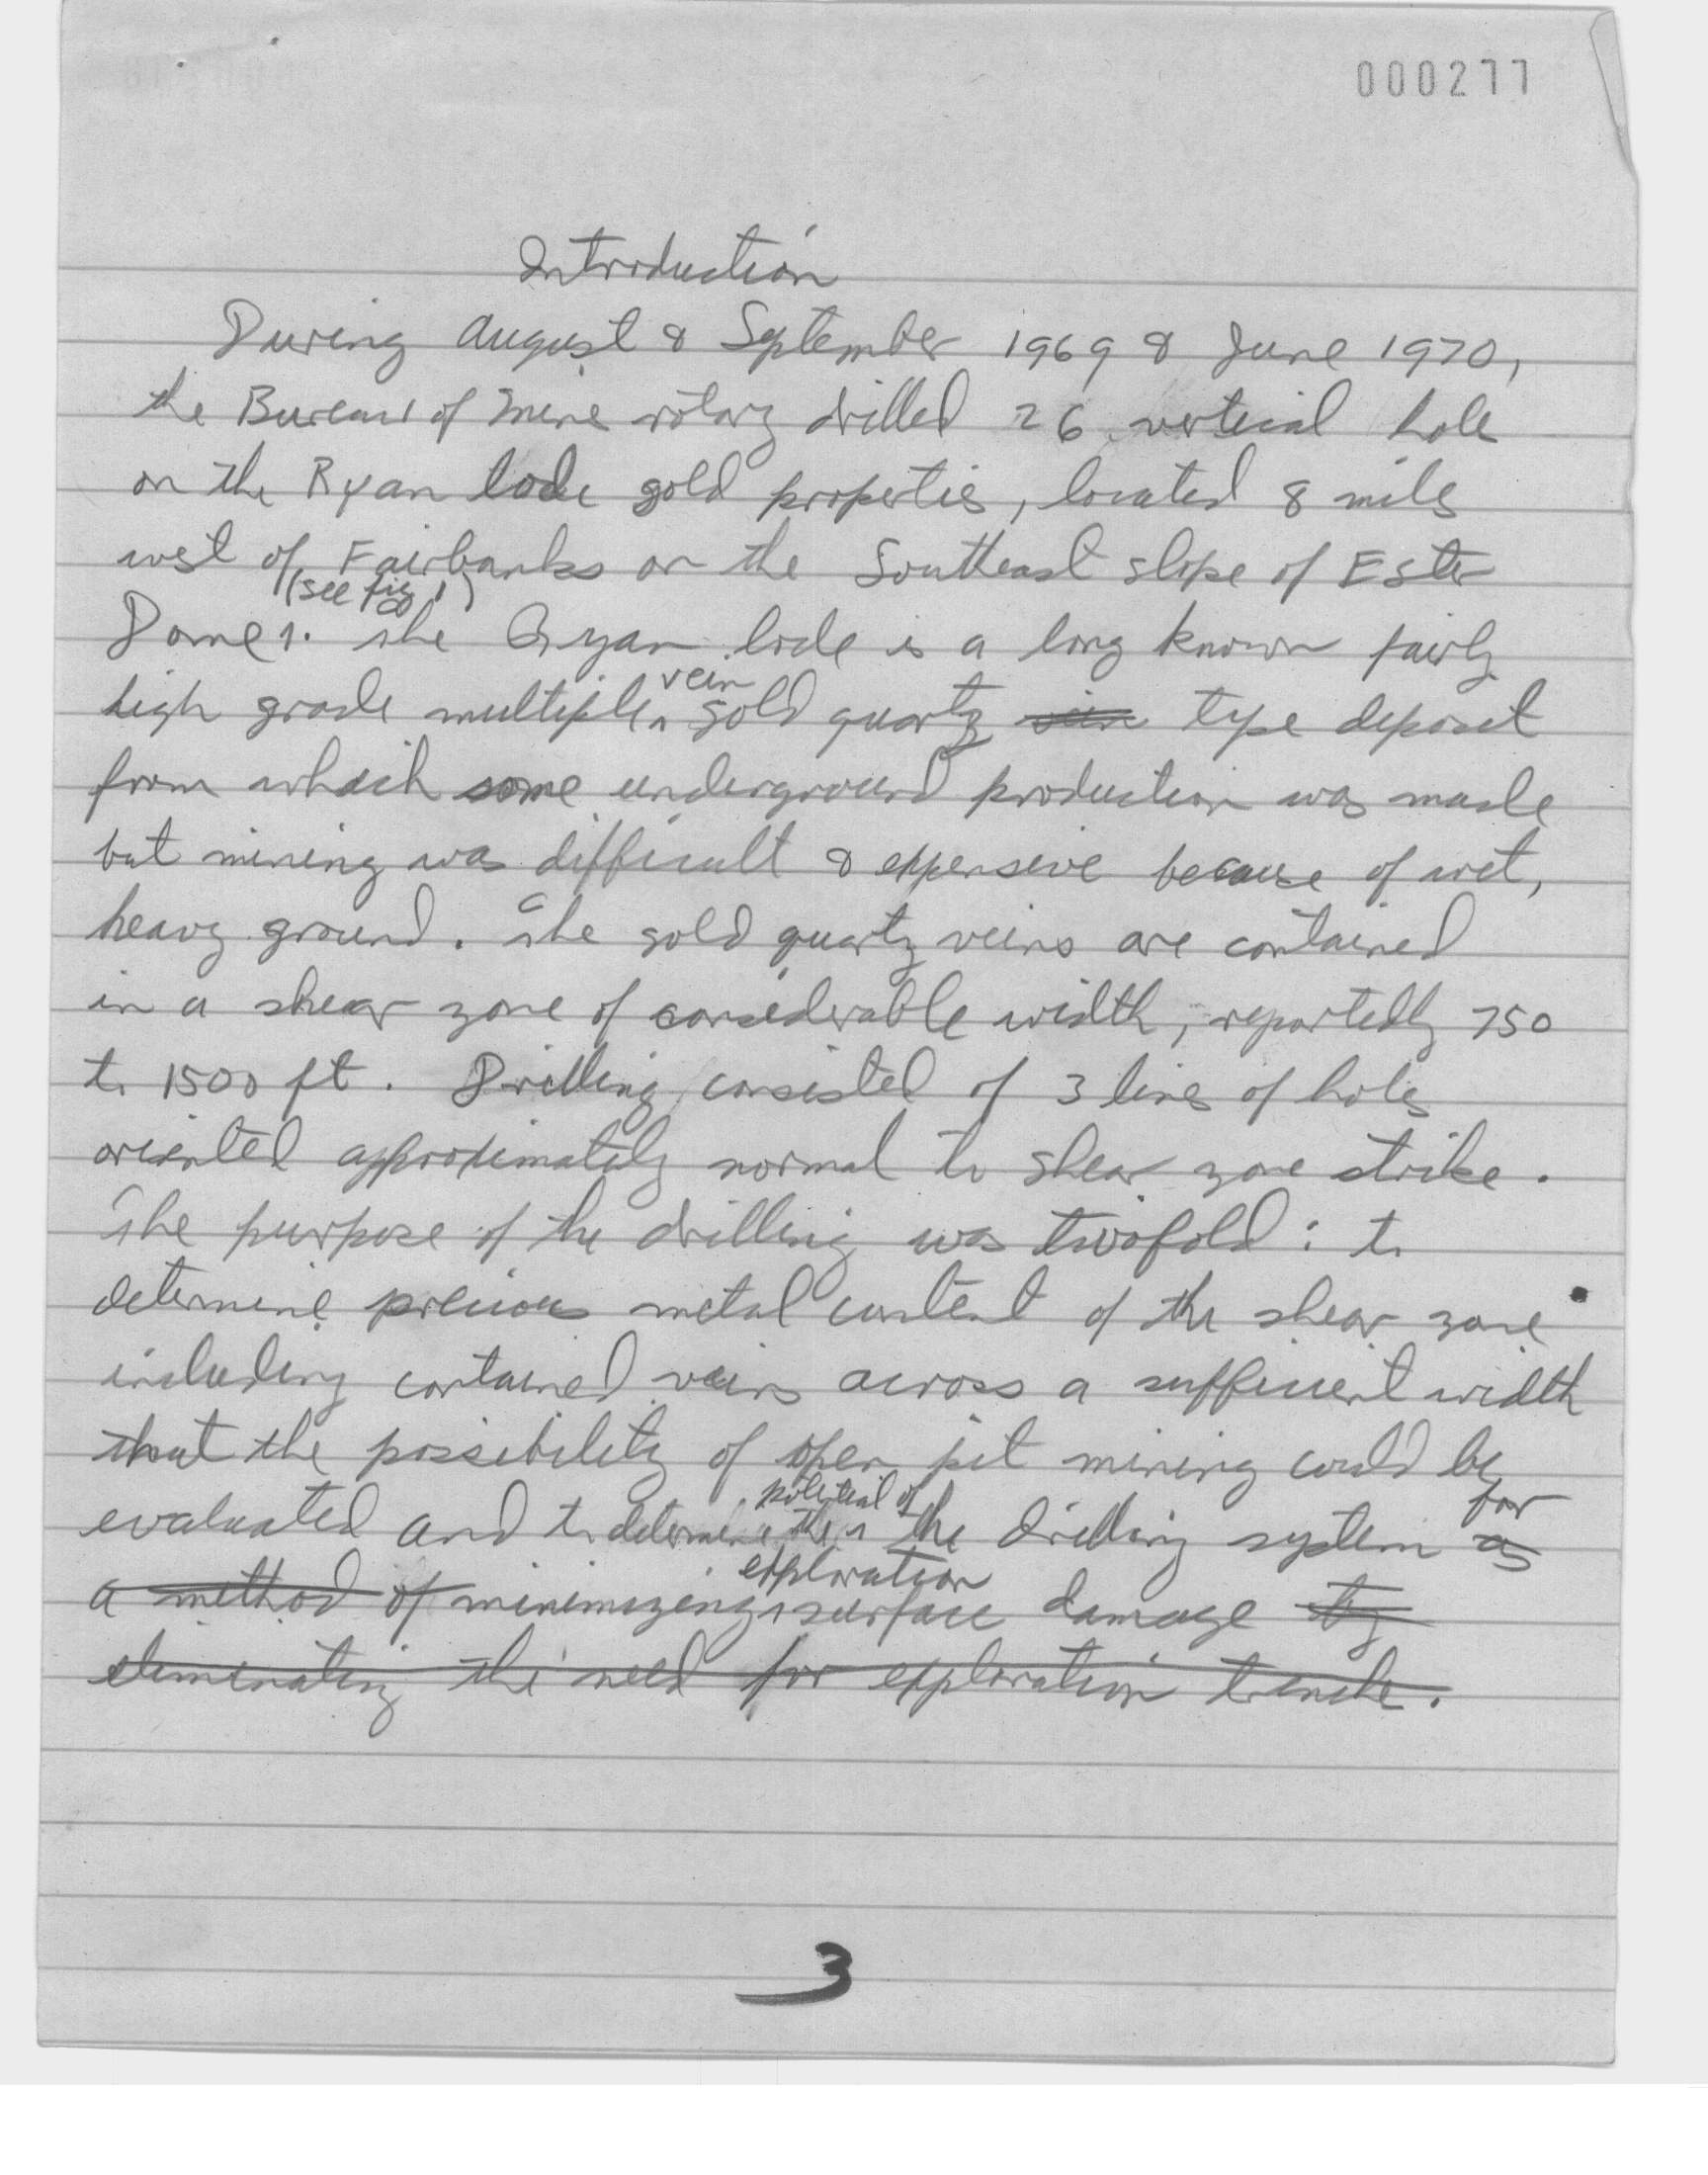 000277
Introduction
During August & September 1969 & June 1970,
the Bureau of Mine rotary drilled 26 vertical hole
on the Ryan lode gold properties, located 8 miles
west of Fairbanks on the Southeast slope of Ester
(see fig 1)
Dome. The Ryan lode is a long known fairly
vein
high grade multiple gold quartz vein type deposit
from which some underground production was made
but mining was difficult & expensive because of wet,
heavy ground. The gold quartz veins are contained
in a shear zone of considerable width, reportedly 750
to 1500 ft. Drilling consisted of 3 lines of holes
oriented approximately normal to shear zone strike.
The purpose of the drilling was twofold: to
determine precious metal content of the shear zone
including contained veins across a sufficient width
that the possibility of open pit mining could be
potential of for
evaluated and to determine the the drilling system as
exploration
a method of minimizing surface damage by
eliminating the need for exploration trenche.
3